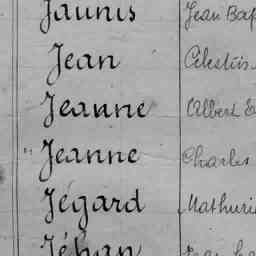 Jaunis Jean Bap
Jean Célestin
Jeanne Albert E
" Jeanne Charles
Jégard Mathuri
Jéhan